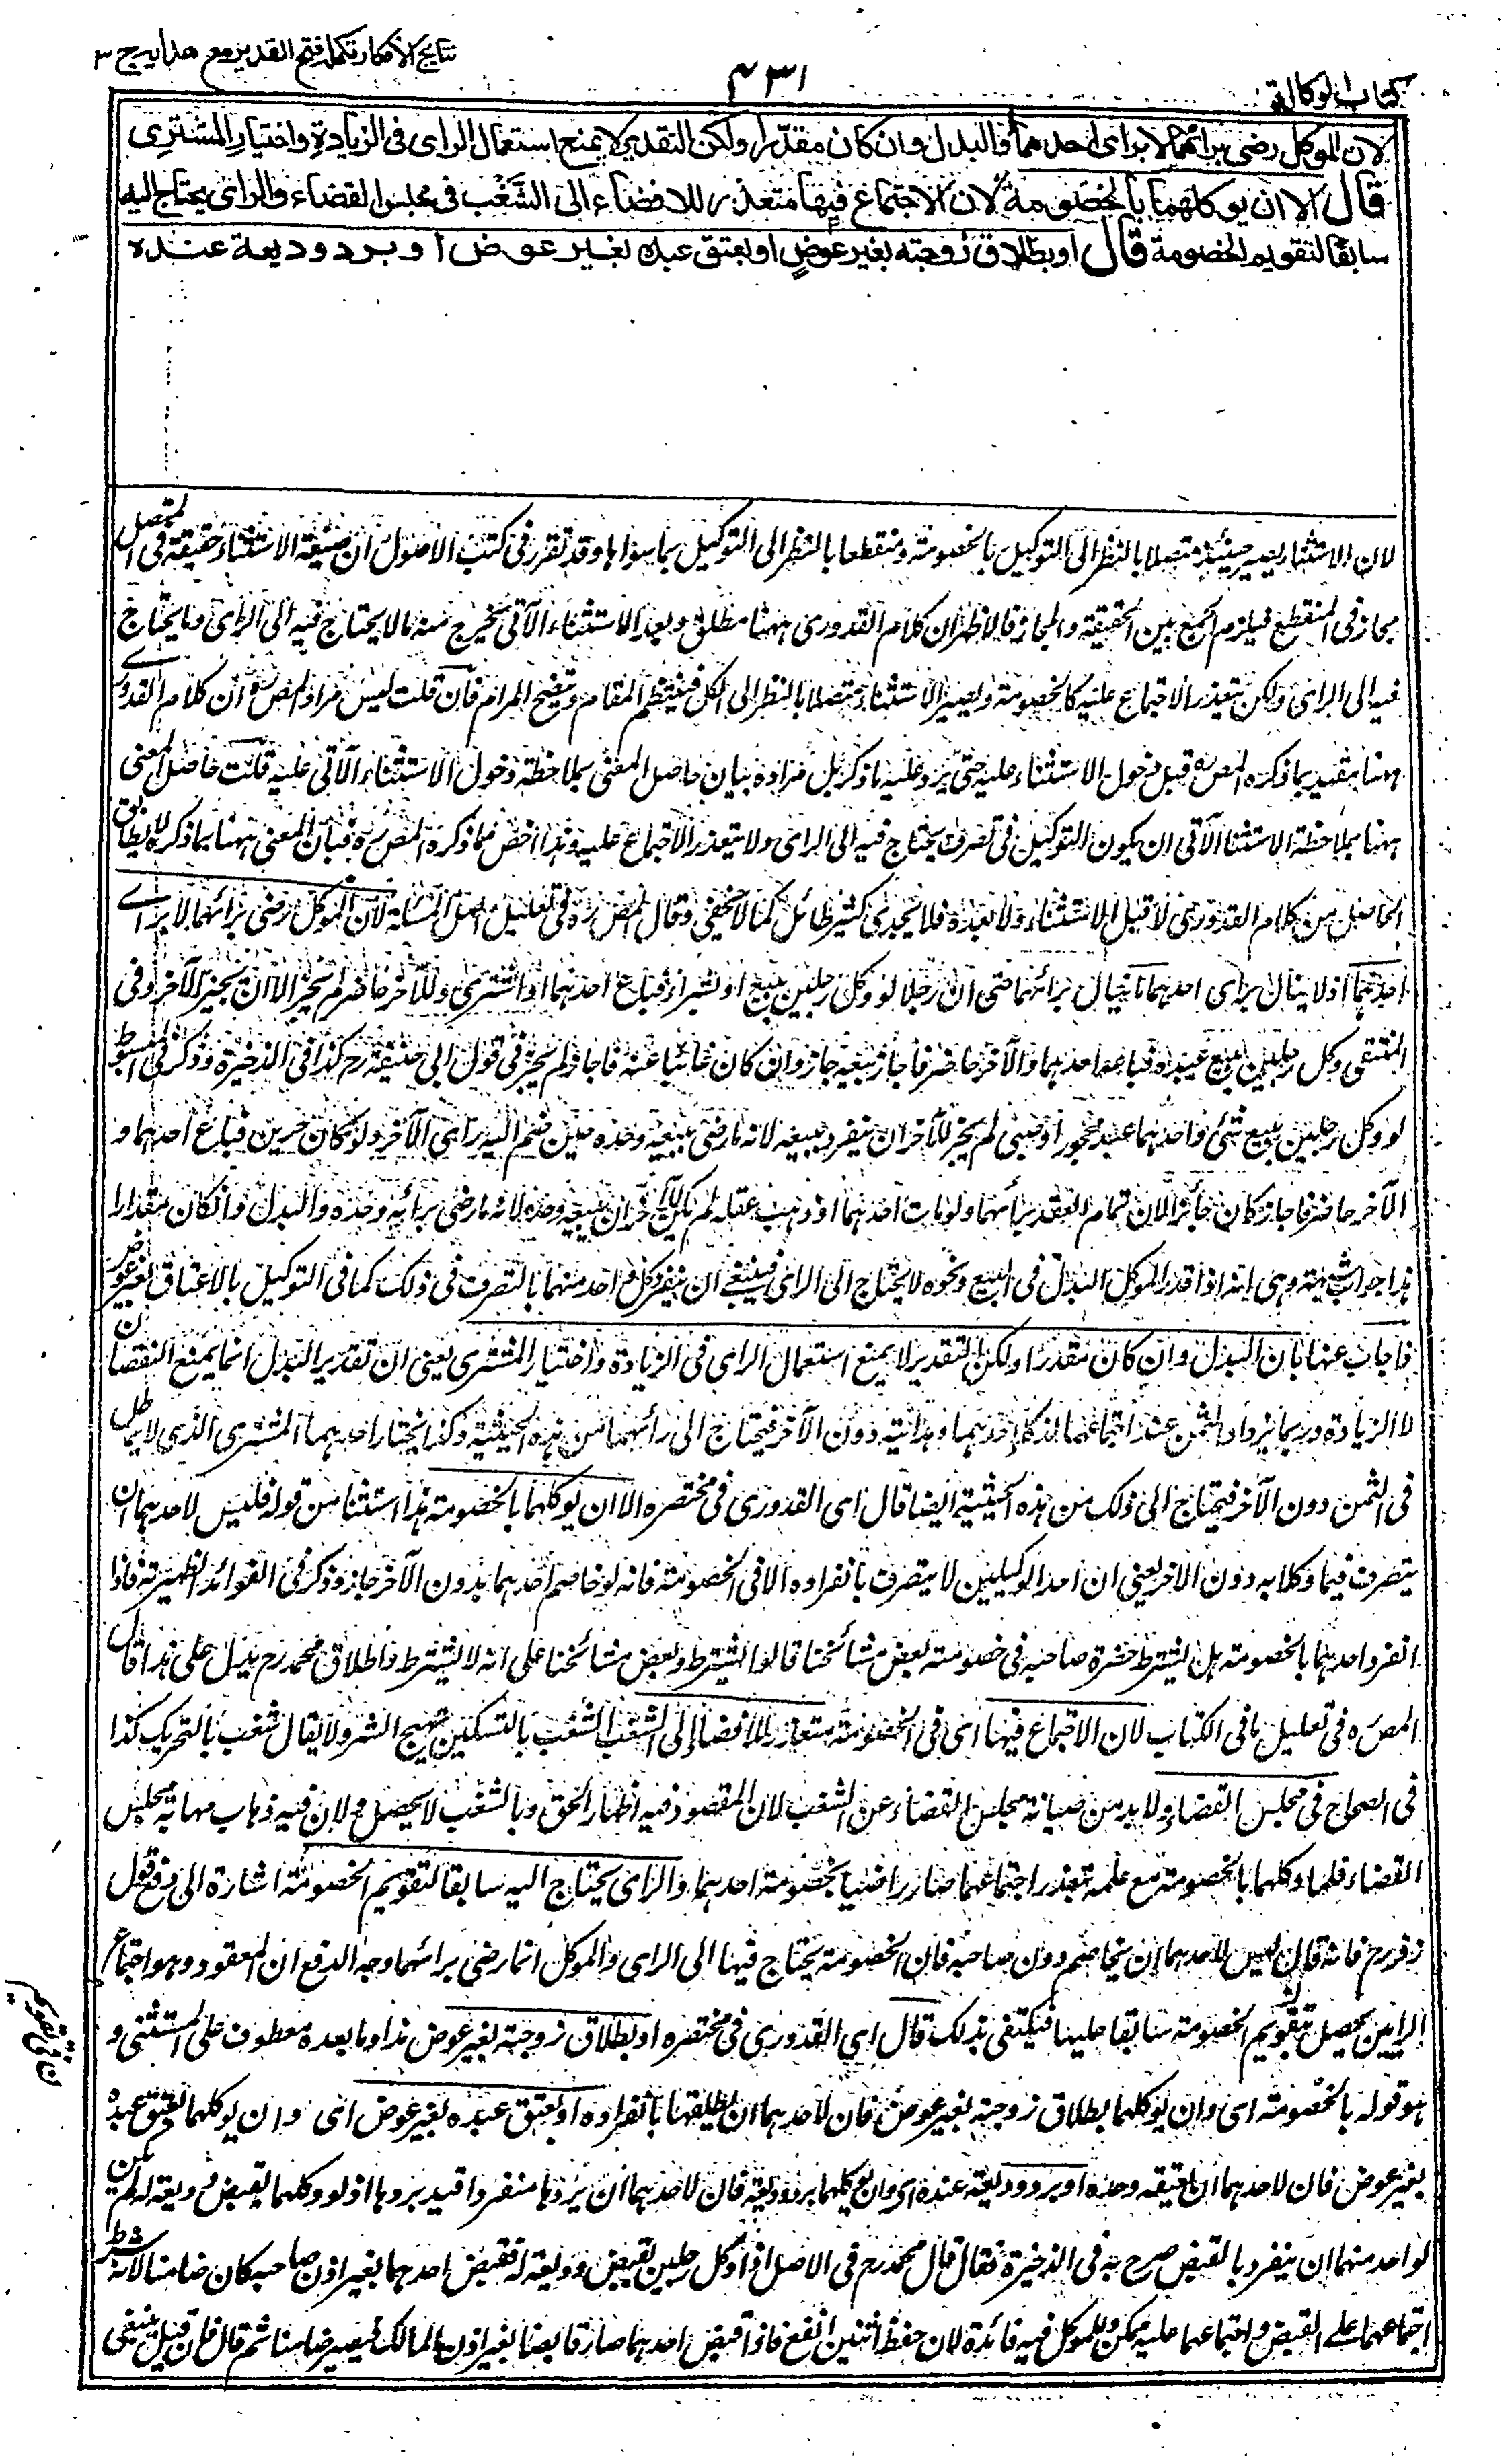 نتایج الافکار تکمله فتح القدیر مع هدایه ج ۳
۴۳۱
کتاب الوکالة
لان الموکل رضی برائهما لا برای احدهما والبدل وان کان مقدّرا ولکن التقدیر لا یمنع استعمال الرای فی الزیادةِ واختیارِ المشتری
قال الا ان یوکلهما بالخصومة لان الاجتماع فیها متعذر للافضاء الی الشَّغْب فی مجلس القضاء والرای یحتاج الیه
سابقا لتقویم الخصومة قال او بطلاق زوجته بغیر عوضٍ او بعتق عبده بغیر عوض او برد ودیعة عنده
لان الاستثناء یصیر حینئذ متصلا بالنظر الی التوکیل بالخصومة ومنقطعا بالنظر الی التوکیل بما سواها وقد تقرر فی کتب الاصول ان صیغة الاستثناء حقیقة فی المتصل
مجاز فی المنقطع فیلزم الجمع بین الحقیقة والمجاز فالاظهر ان کلام القدوری ههنا مطلق وبعد الاستثناء الآتی یخرج منه ما لا یحتاج فیه الی الرای وما یحتاج
فیه الی الرای ولکن یتعذر الاجتماع علیه کالخصومة ویصیر الاستثناء متصلا بالنظر الی الکل فینتظم المقام ویتضح المرام فان قلت لیس مراد المص ره ان کلام القدوری
ههنا مقید بما ذکره المص ره قبل دخول الاستثناء علیه حتی یرد علیه ما ذکر بل مراده بیان حاصل المعنی بملاحظة دخول الاستثناء الآتی علیه قلت حاصل المعنی
ههنا بملاحظة الاستثنا الآتی ان یکون التوکیل فی تصرف یحتاج فیه الی الرای ولا یتعذر الاجتماع علیه وهذا اخص مما ذکره المص ره فبیان المعنی ههنا بما ذکره لا یطابق
الحاصل من کلام القدوری لا قبل الاستثناء ولا بعده فلا یجدی کثیر طائل کما لا یخفی وقال المص ره فی تعلیل اصل المسئلة لان الموکل رضی برائهما لا برای
احدهما اذ لا ینال برای احدهما ما ینال برائهما حتی ان رجلا لو وکل رجلین ببیع او شراء فباع احدهما او اشتری والآخر حاضر لم یجز الا ان یجیز الآخر وفی
المنتقی وکل رجلین ببیع عبده فباعه احدهما والآخر حاضر فاجاز بیعه جاز وان کان غائبا عنه فاجاز لم یجز فی قول ابی حنیفة رح کذا فی الذخیرة وذکر فی المبسوط
لو وکل رجلین ببیع شئ واحدهما عبد محجور او صبی لم یجز للآخر ان ینفرد ببیعه لانه ما رضی ببیعه وحده حین ضم الیه رای الآخر ولو کان حرین فباع احدهما و
الآخر حاضر فاجاز کان جائزا لان تمام العقد برأیهما ولو مات احدهما او ذهب عقله لم یکن للآخر ان یبیعه وحده لانه ما رضی برائه وحده والبدل وانکان مقدرا
هذا جواب شبهة وهی انه اذا قدر الموکل البدل فی البیع ونحوه لا یحتاج الی الرای فینبغی ان ینفرد کل واحد منهما بالتصرف فی ذلک کما فی التوکیل بالاعتاق بغیر عوض
فاجاب عنها بان البدل وان کان مقدرا ولکن التقدیر لا یمنع استعمال الرای فی الزیادة واختیار المشتری یعنی ان تقدیر البدل انما یمنع النقصان
لا الزیادة وربما یزداد الثمن عند اجتماعهما لذکاء احدهما وهدایته دون الآخر فیحتاج الی رائهما من هذه الحیثیة وکذا یختار احدهما المشتری الذی لا یماطل
فی الثمن دون الآخر فیحتاج الی ذلک من هذه الحیثیة ایضا قال ای القدوری فی مختصره الا ان یوکلهما بالخصومة هذا استثنا من قوله فلیس لاحدهما ان
یتصرف فیما وکلا به دون الاخر یعنی ان احد الوکیلین لا یتصرف بانفراده الا فی الخصومة فانه لو خاصم احدهما بدون الآخر جاز وذکر فی الفوائد الظهیریة فاذا
انفرد احدهما بالخصومة هل یشترط حضرة صاحبه فی خصومته بعض مشائخنا قالوا یشترط وبعض مشائخنا علی انه لا یشترط واطلاق محمد رح یدل علی هذا قال
المص ره فی تعلیل ما فی الکتاب لان الاجتماع فیها ای فی الخصومة متعذر للافضاء الی الشغب الشغب بالتسکین تهییج الشر ولا یقال شغب بالتحریک کذا
فی الصحاح فی مجلس القضاء ولا بد من صیانة مجلس القضاء عن الشغب لان المقصود فیه اظهار الحق وبالشغب لا یحصل ولان فیه ذهاب مهابة مجلس
القضاء فلما وکلهما بالخصومة مع علمه بتعذر اجتماعهما صار راضیا بخصومة احدهما والرای یحتاج الیه سابقا لتقویم الخصومة اشارة الی دفع قول
زفر رح فانه قال لیس لاحدهما ان یخاصم دون صاحبه فان الخصومة یحتاج فیها الی الرای والموکل انما رضی برائهما وجه الدفع ان المقصود وهو اجتماع
الرایین یحصل بتقویم الخصومة سابقا علیها فیکتفی بذلک قال ای القدوری فی مختصره او بطلاق زوجته بغیر عوض هذا وما بعده معطوف علی المستثنی و
هو قوله بالخصومة ای وان یوکلهما بطلاق زوجته بغیر عوض فان لاحدهما ان یطلقها بانفراده او بعتق عبده بغیر عوض ای وان یوکلهما بعتق عبده
بغیر عوض فان لاحدهما ان یعتقه وحده او برد ودیعة عنده ای وان یوکلهما برد ودیعة فان لاحدهما ان یردها منفردا قید بردها اذ لو وکلهما بقبض ودیعة له لم یکن
لواحد منهما ان ینفرد بالقبض صرح به فی الذخیرة فقال قال محمد رح فی الاصل اذا وکل رجلین بقبض ودیعة له فقبض احدهما بغیر اذن صاحبه کان ضامنا لانه شرط
اجتماعهما علی القبض واجتماعهما علیه ممکن وللموکل فیه فائدة لان حفظ اثنین انفع فاذا قبض احدهما صار قابضا بغیر اذن المالک فیصیر ضامنا ثم قال فان قیل ینبغی